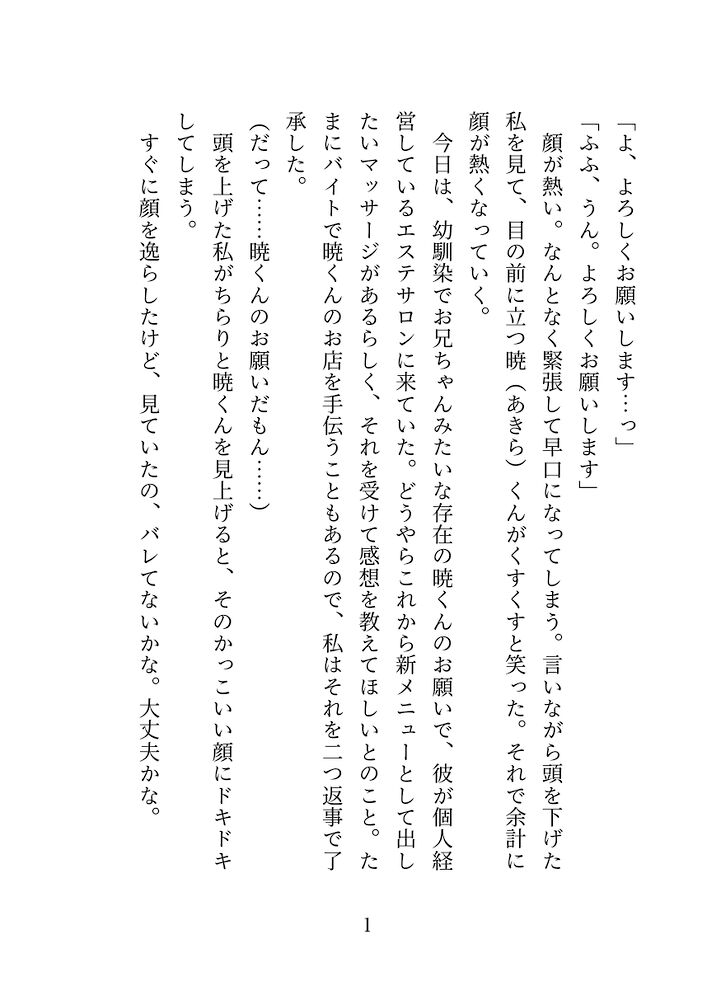 「よ、よろしくお願いします…っ」
「ふふ、うん。よろしくお願いします」
　顔が熱い。なんとなく緊張して早口になってしまう。言いながら頭を下げた
私を見て、目の前に立つ暁（あきら）くんがくすくすと笑った。それで余計に
顔が熱くなっていく。
　今日は、幼馴染でお兄ちゃんみたいな存在の暁くんのお願いで、彼が個人経
営しているエステサロンに来ていた。どうやらこれから新メニューとして出し
たいマッサージがあるらしく、それを受けて感想を教えてほしいとのこと。た
まにバイトで暁くんのお店を手伝うこともあるので、私はそれを二つ返事で了
承した。
（だって……暁くんのお願いだもん……）
　頭を上げた私がちらりと暁くんを見上げると、そのかっこいい顔にドキドキ
してしまう。
　すぐに顔を逸らしたけど、見ていたの、バレてないかな。大丈夫かな。
1